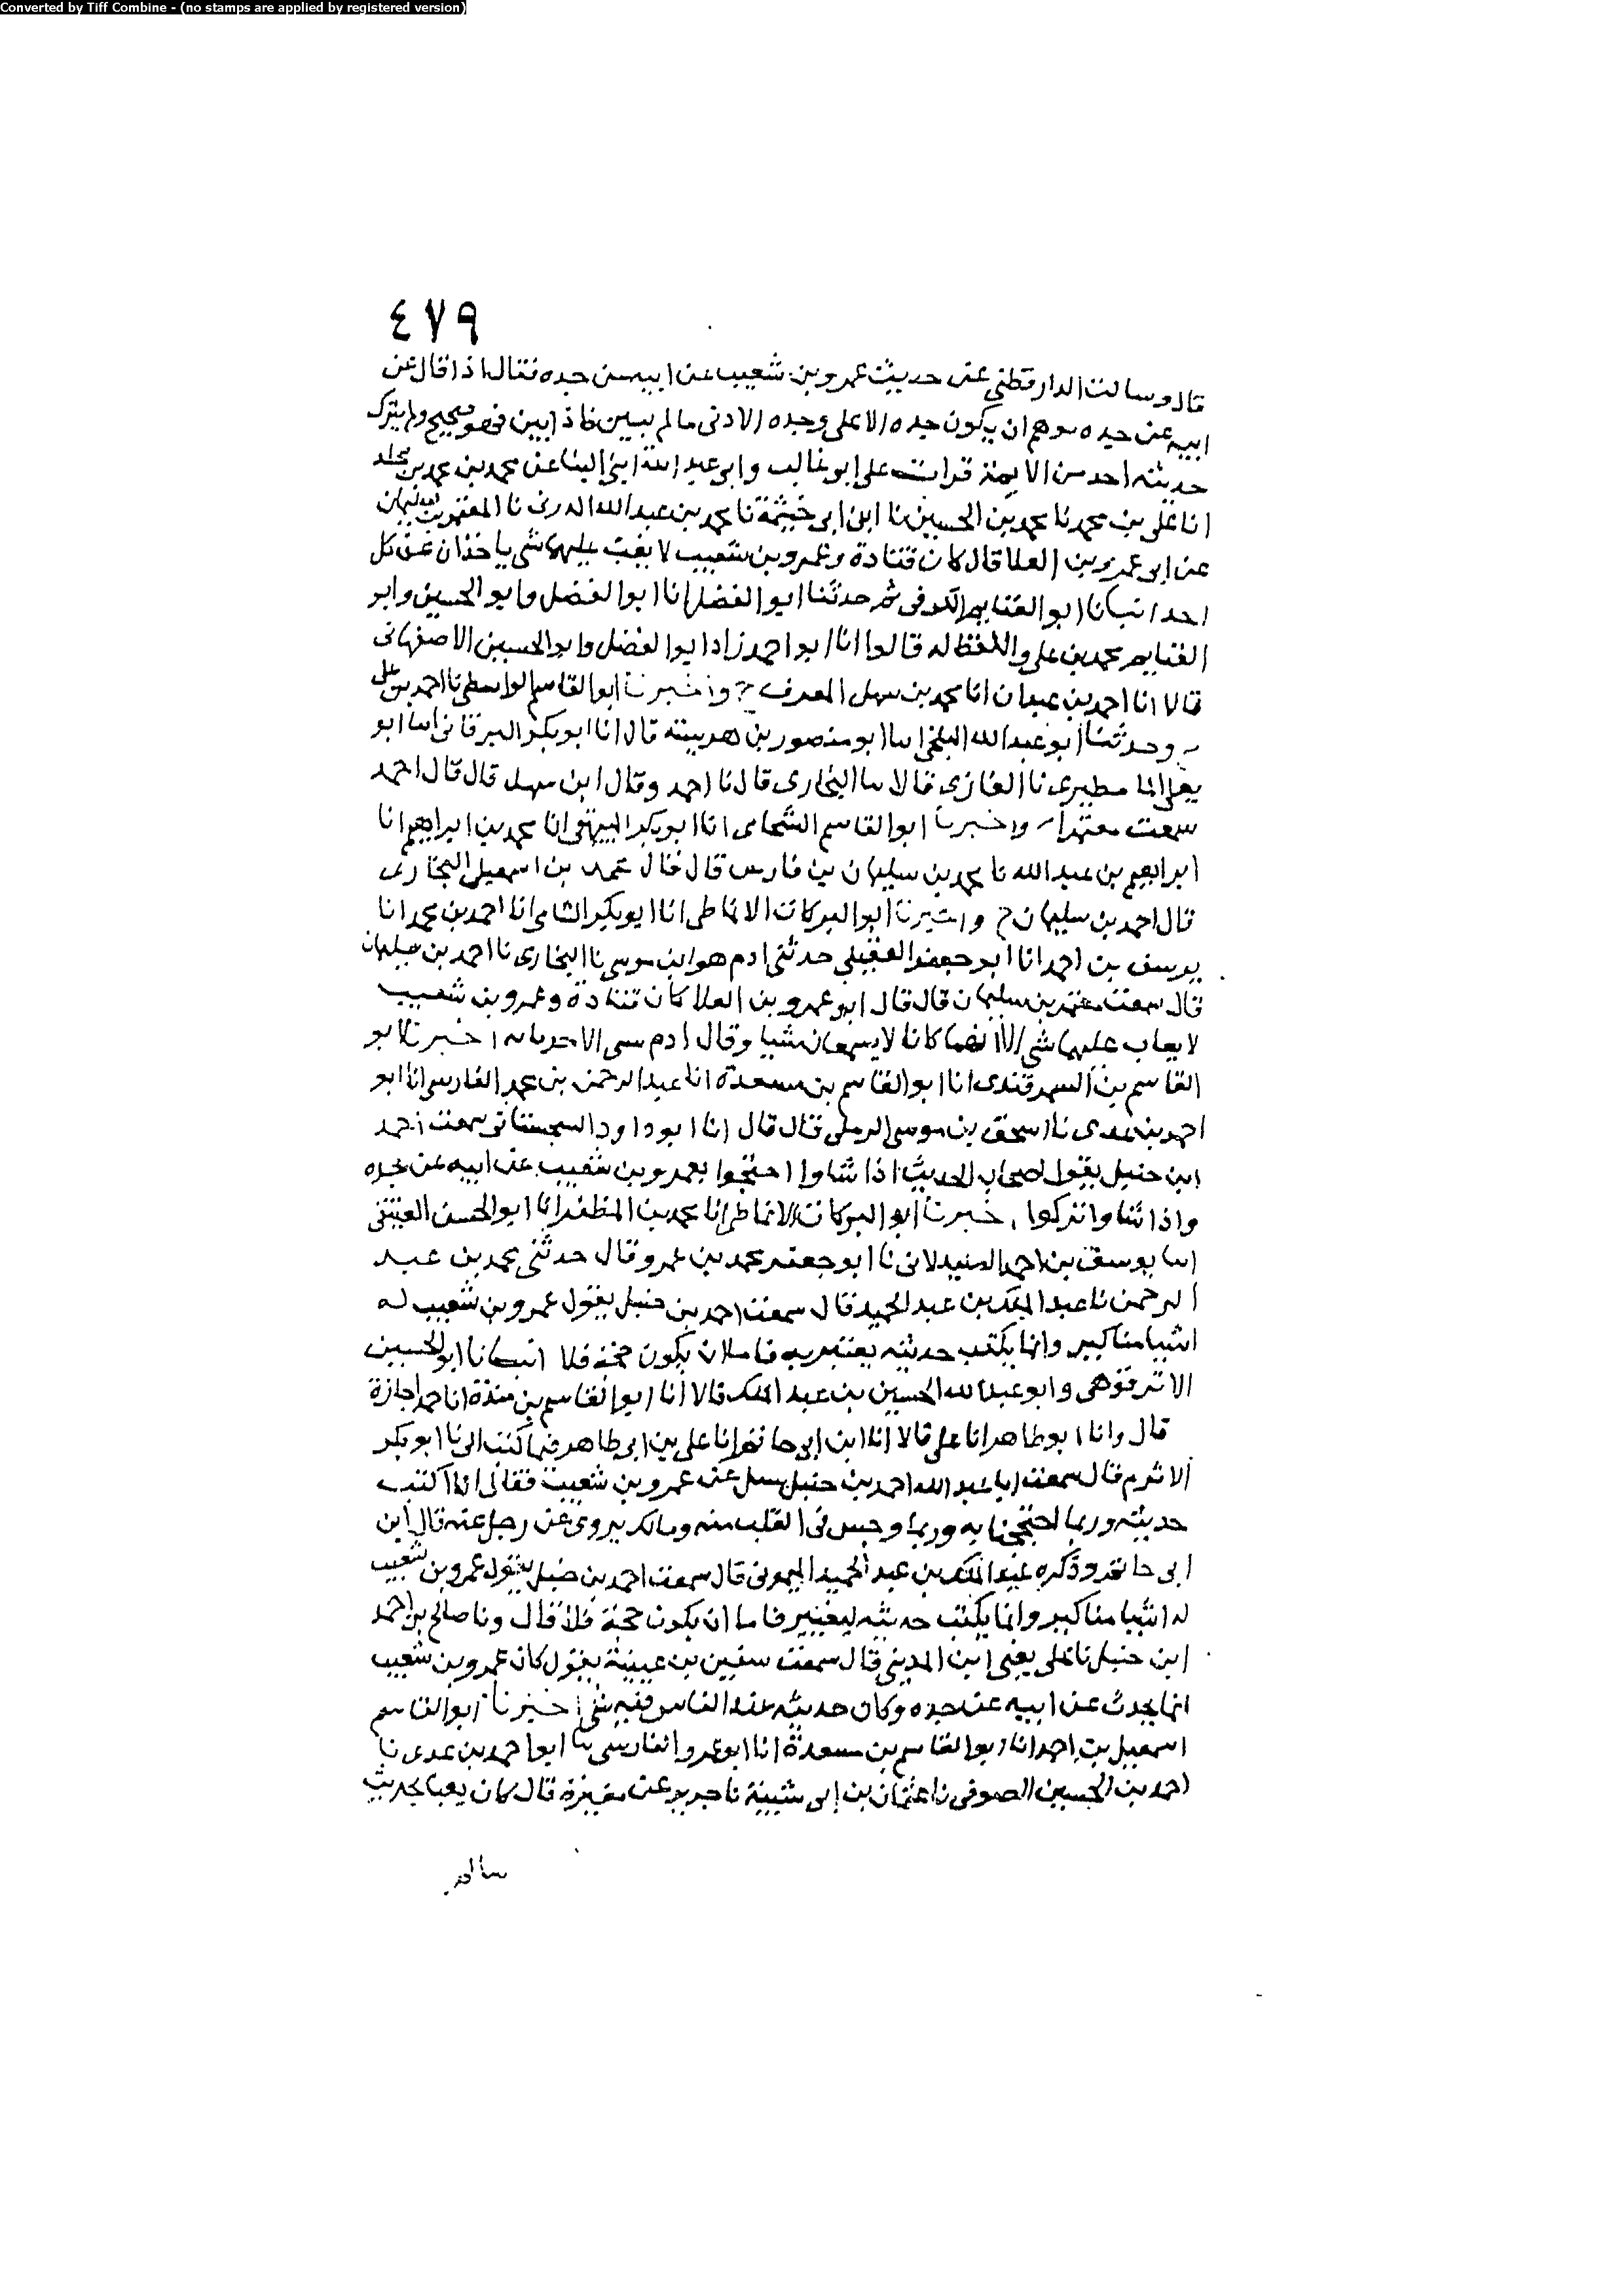 Converted by Tiff Combine - (no stamps are applied by registered version)
٤٧٩
قال وسالت الدارقطني عن حديث عمرو بن شعيب عن ابيه عن جده فقال اذا قال عن
ابيه عن جده يوهم ان يكون جده الاعلى وجده الادنى ما لم يبين فاذا بين فهو صحيح ولم يترك
حديثه احد من الايمة قرات على ابو غالب وابى عبد الله ابنى البنا عن محمد بن محمد بن مخلد
انا على بن محمد نا محمد بن الحسين نا ابن ابى خيثمة نا محمد بن عبد الله نا المعتمر بن سليمان
عن ابى عمرو بن العلا قال كان قتادة وعمرو بن شعيب لا يغث عليهما شى ياخذان عن كل
احد انبانا ابو الغنايم الكوفى ثم حدثنا ابو الفضل انا ابو الفضل وابو الحسين وابو
الغنايم محمد بن على واللفظ له قالوا انا ابو احمد زاد ابو الفضل وابو الحسين الاصفهانى
قالا انا احمد بن عبدان انا محمد بن سهل المعرف ح واخبرنا ابو القاسم الواسطى نا احمد بن على
ح وحدثنا ابو عبد الله البلخى انا ابو منصور بن هريسة قال انا ابو بكر البرقانى انا ابو
يعلى نا الغازى قالا نا البخارى قال نا احمد وقال ابن سهل قال قال احمد
سمعت معتمرا ح واخبرنا ابو القاسم الشحامى انا ابو بكر البيهقى انا محمد بن ابراهيم انا
ابراهيم بن عبد الله نا محمد بن سليمان بن فارس قال قال محمد بن اسمعيل البخارى
قال احمد بن سليمان ح واخبرنا ابو البركات الانماطى انا ابو بكر الشامى انا احمد بن محمد انا
يوسف بن احمد انا ابو جعفر العقيلى حدثنى ادم هو ابن موسى نا البخارى نا احمد بن سليمان
قال سمعت معتمر بن سليمان قال قال ابو عمرو بن العلا كان قتادة وعمرو بن شعيب
لا يعاب عليهما شى الا انهما كانا لا يسمعان شيا وقال ادم الا اخبرنا ابو
القاسم بن السمرقندى انا ابو القاسم بن مسعدة انا عبد الرحمن بن محمد الفارسى انا ابو
احمد بن عدى نا اسحق بن موسى الرملى قال قال انا ابو داود السجستانى سمعت احمد
ابن حنبل يقول اصحاب الحديث اذا شاوا احتجوا بعمرو بن شعيب عن ابيه عن جده
واذا شاوا تركوا اخبرنا ابو البركات الانماطى انا محمد بن المظفر انا ابو الحسن العتيقى
انا يوسف بن احمد الصيدلانى نا ابو جعفر محمد بن عمرو قال حدثنى محمد بن عبد
الرحمن نا عبد الملك بن عبد الحميد قال سمعت احمد بن حنبل يقول عمرو بن شعيب له
اشيا مناكير وانما يكتب حديثه يعتبر به فاما ان يكون حجة فلا انبانا ابو الحسين
الابرقوهى وابو عبد الله الحسين بن عبد الملك قالا انا ابو القاسم بن مندة انا حمد اجازة
قال وانا ابو طاهر انا على قالا انا ابن ابى حاتم انا على بن ابى طاهر فيما كتب الى نا ابو بكر
الاثرم قال سمعت ابا عبد الله احمد بن حنبل يسل عن عمرو بن شعيب فقال انا اكتب
حديثه وربما احتججنا به وربما وجس فى القلب منه ومالك يروى عن رجل عنه قال ابن
ابى حاتم وذكره عبد الملك بن عبد الحميد الميمونى قال سمعت احمد بن حنبل يقول عمرو بن شعيب
له اشيا مناكير وانما يكتب حديثه ليعتبر فاما ان يكون حجة فلا قال ونا صالح بن احمد
ابن حنبل نا على يعنى ابن المدينى قال سمعت سفين بن عيينة يقول كان عمرو بن شعيب
انما يحدث عن ابيه عن جده وكان حديثه عند الناس فيه شى اخبرنا ابو القاسم
اسمعيل بن احمد انا ابو القاسم بن مسعدة انا ابو عمرو الفارسى نا ابو احمد بن عدى نا
احمد بن الحسين الصوفى نا عثمان بن ابى شيبة نا جرير عن مغيرة قال كان يعبا بحديث
سالم